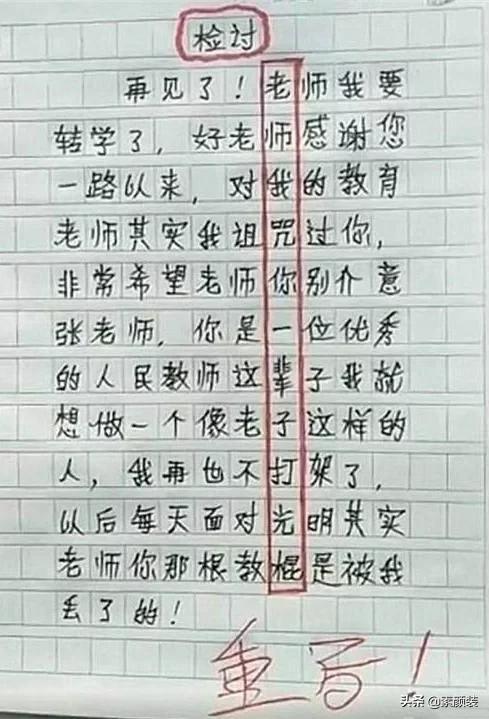 检讨
再见了！老师我要
转学了，好老师感谢您
一路以来，对我的教育
老师其实我诅咒过你，
非常希望老师你别介意
张老师，你是一位优秀
的人民教师这辈子我就
想做一个像老子这样的
人，我再也不打架了，
以后每天面对光明其实
老师你那根教棍是被我
丢了的！
重写！
头条@素颜装